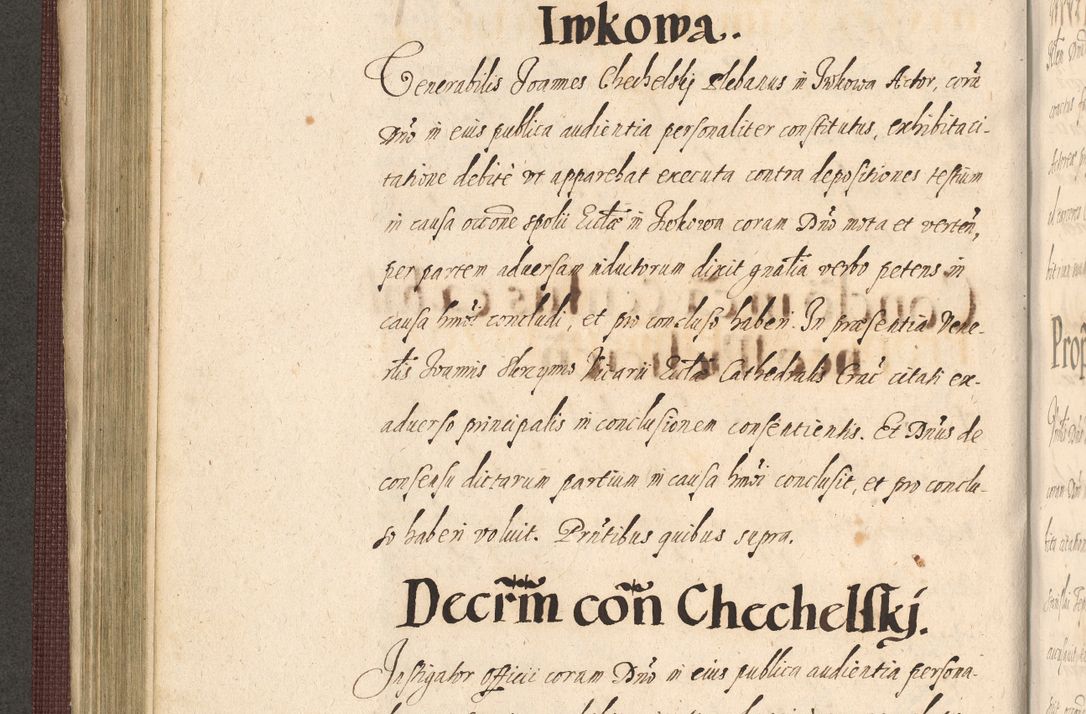 Iwkowa.
Venerabilis Joannes Chechelskj Plebanus in Iwkowa Actor, corā
Dnō in eius publica audientia personaliter constitutus, exhibita ci-
tatione debitè ut apparebat executa contra depositiones testium
in causa occōne spolii Ecclæ in Iwkowa coram Dnō mota et verteñ,
per partem adversam inductorum dixit gnālia verbo petens in
causa hmōi concludi, et pro concluso haberi. In præsentia Vene-
rlis Joannis Vicarii Ecclæ Cathedralis Crac̄ citati ex-
adverso principalis in conclusionem consentientis. Et Dnūs de
consensu dictarum partium in causa hmōi conclusit, et pro conclu-
so haberi voluit. Prñtibus quibus supra.
Decrm̄ con̄ Chechelskj.
Instigator officii coram Dnō in eius publica audientia persona-